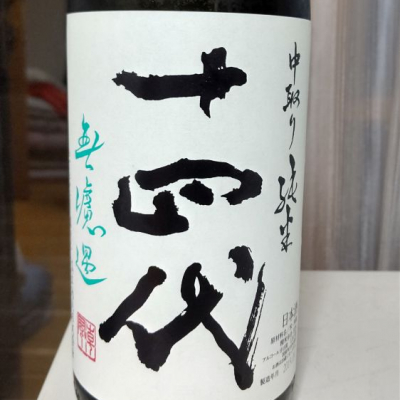 中取り純米
十四代
無濾過
日本酒